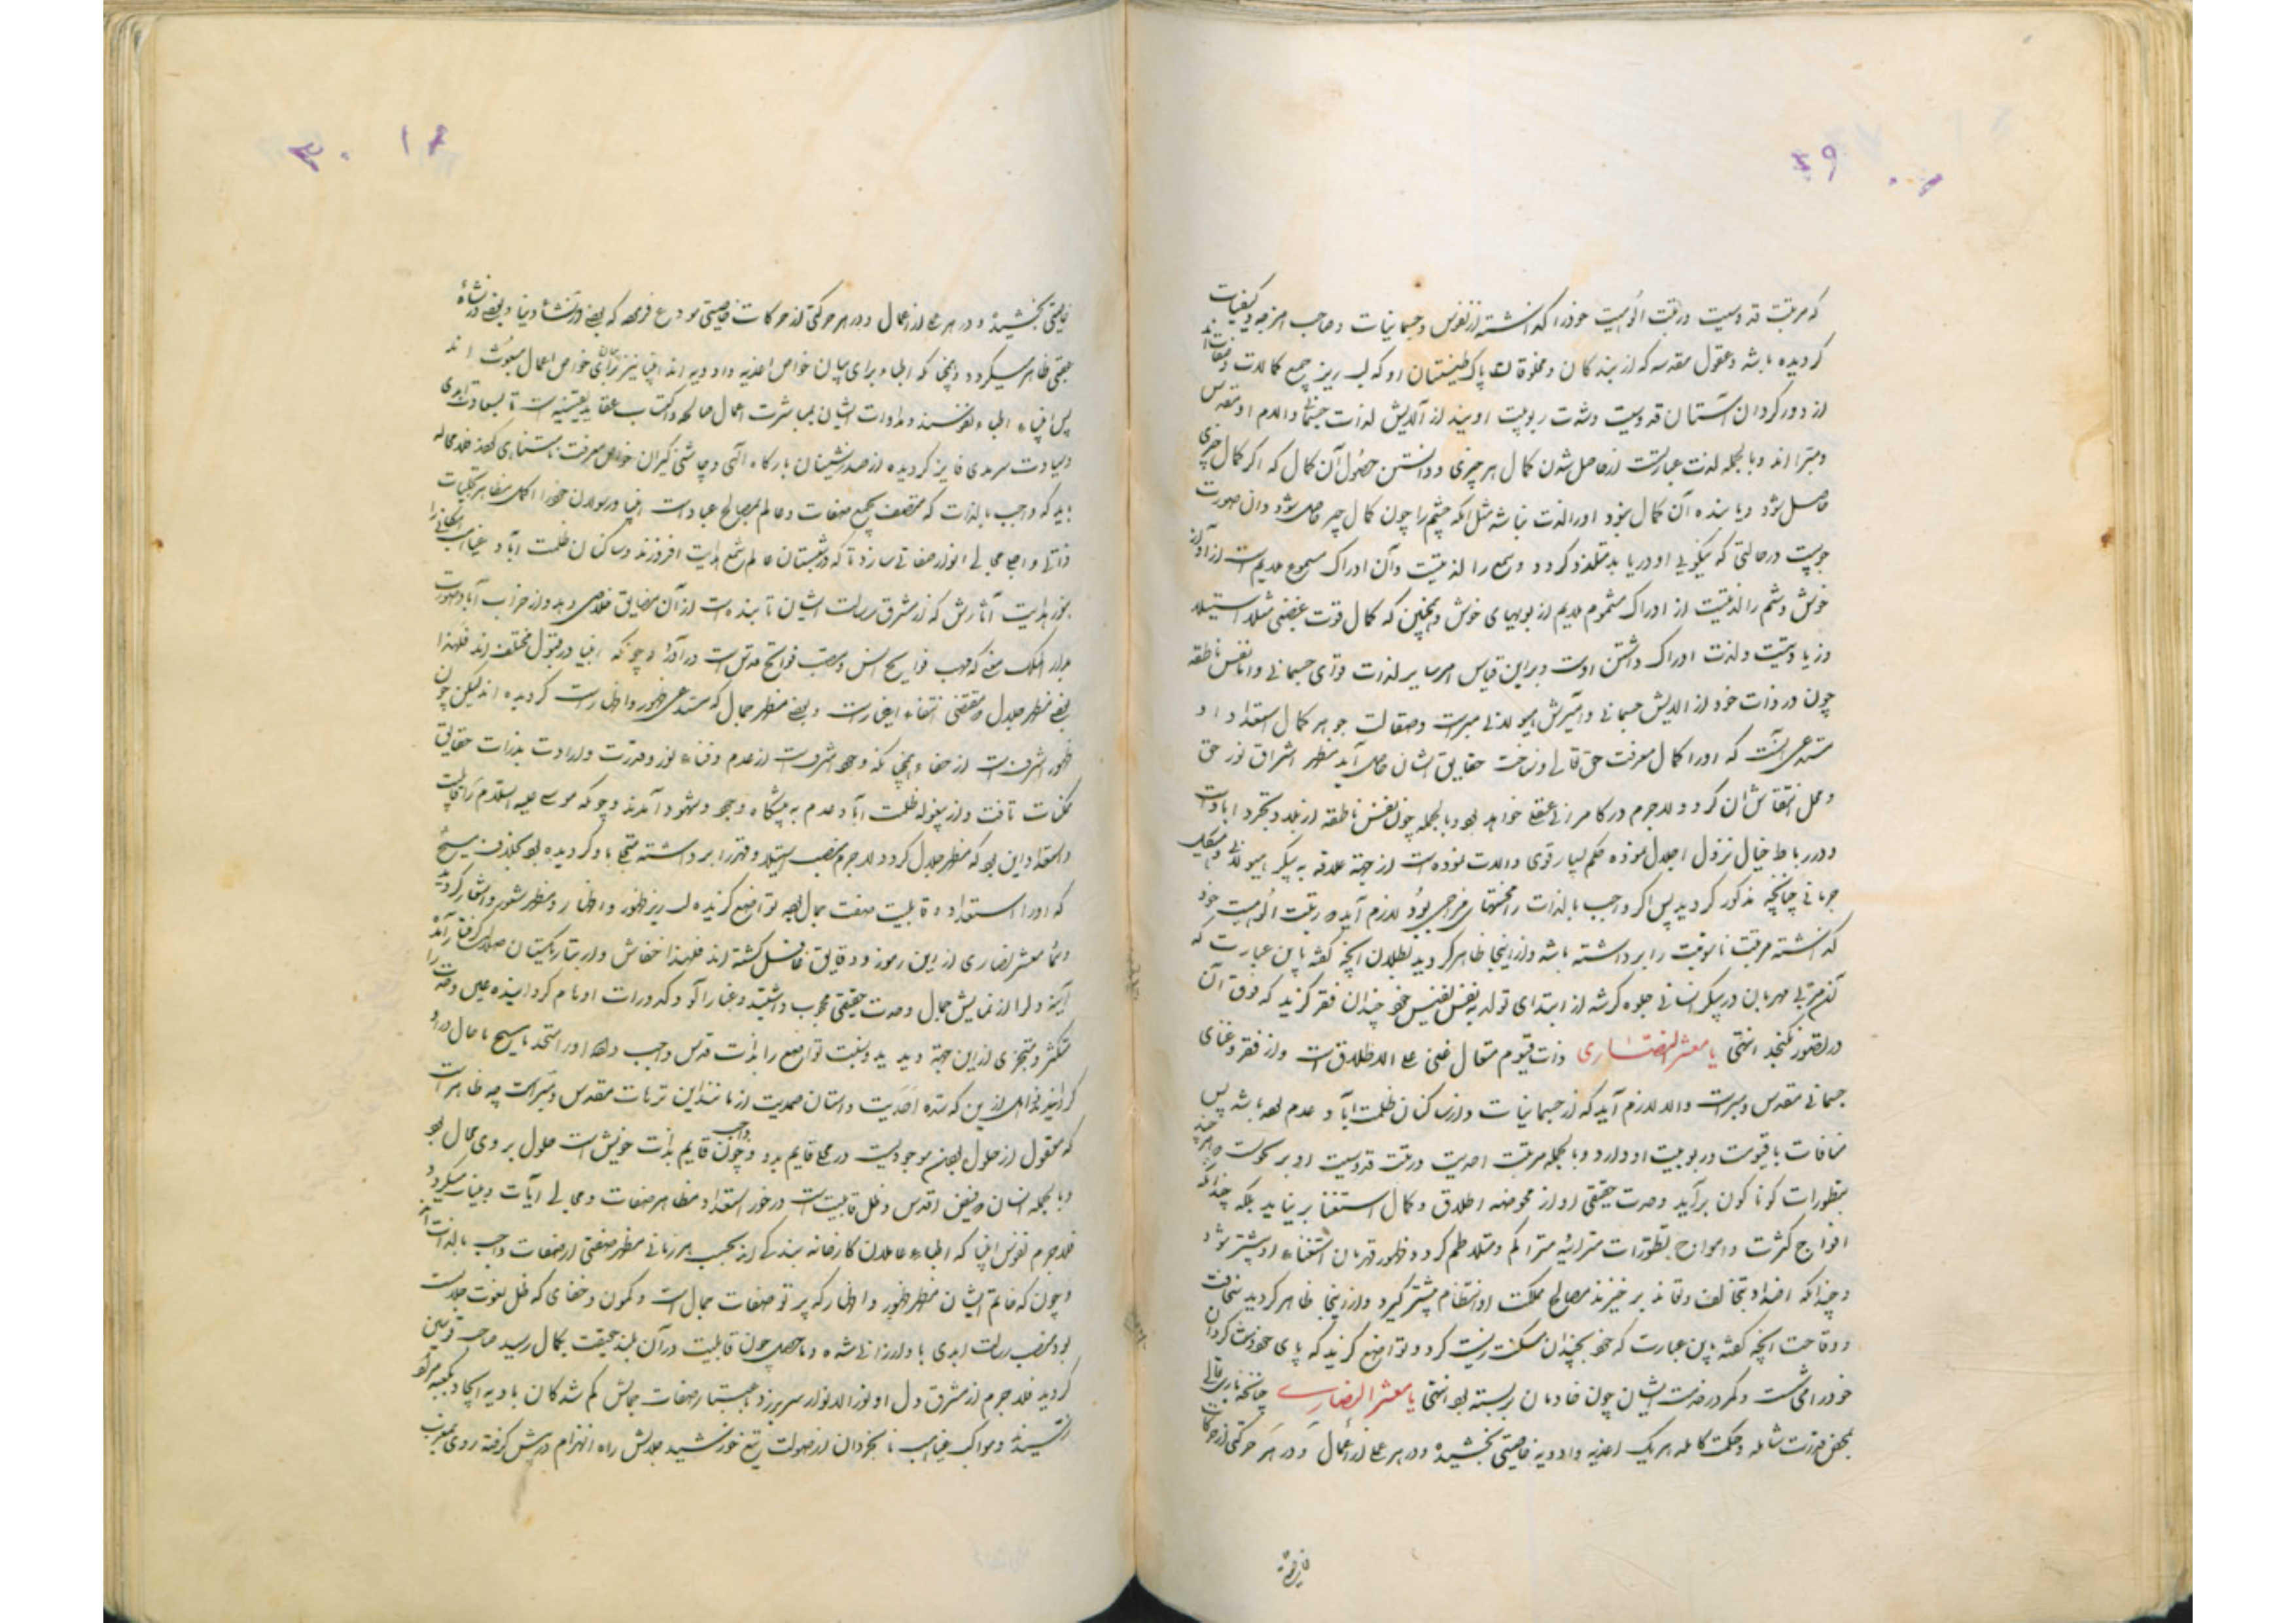 که مرتبت قدوسیت و رتبت الوهیت خود را گذاشته از نفوس و جسمانیات و صاحب امزجه و کیفیات
گردیده باشد و عقول مقدسه که از بندگان و مخلوقات پاک طینتان او که لب ریز جمیع کمالات
از دور گردان آستان قدوسیت و سده ربوبیت اویند از آلایش لذات جسمی و آلام او مقدس
و مبرّا اند و بالجمله لذت عبارتست از حاصل شدن کمال هر چیزی و دانستن حصول آن کمال که اگر کمال چیزی
حاصل شود و یابنده آن کمال نبود او را لذت نباشد مثل آنکه چشم را چون کمال چیز حاصل شود و آن صورت
در حالتی که نیکویی او دریابد متلذذ گردد و سمع را لذتیست و آن ادراک مسموع ملایم است از آواز
خوش و شم را لذتیست از ادراک مشموم ملایم از بویهای خوش و همچنین که کمال قوت غضبی مثلا استیلا
و زیادتیست و لذت ادراک داشتن اوست و براین قیاس امر سایر لذت قوای جسمانی و اما نفس ناطقه
چون در ذات خود از آلایش جسمانی و آمیزش هیولانی مبراست و صقالت جوهر کمال استعداد او
مستدعی آنست که او را کمال معرفت حق تعالی و شناخت حقایق اشیان حاصل آید مظهر اشراق نور حق
و محل انتقاش آن گردد لاجرم در کامرانی عقلی خواهد بود و بالجمله چون نفس ناطقه از بلاد تجرد
و در رباط خیال نزول اجلال نموده حکم لیسار قوی و آلات نموده است از جهة علاقه به پیکر هیولانی و هیکل
جرمانی چنانچه مذکور گردید پس اگر واجب بالذات را محنتهای مزاجی بود لازم آید که رتبت الوهیت خود
گذاشته مرتبت ناسوتیت را برداشته باشد و از اینجا ظاهر گردید بطلان آنچه گفته باین عبارت که
آن مربی مهربان در پیکر انسانی جلوه گر شد از ابتدای تولد به نفس نفیس خود چندان فقر گزید که فوق آن
در تصور نگنجد انتهی یا معشر النصاری ذات قیوم متعال غنی علی الاطلاق است و از فقر و غنای
جسمانی مقدس و مبراست و الا لازم آید که از جسمانیات و از ساکنان ظلمت آباد عدم بوده باشد پس
منافات با قیومیت و ربوبیت او دارد و بالجمله مرتبت احدیت و رتبت قدوسیت او بر کسوت
بتطورات گوناگون برآید وحدت حقیقی او از محوضه اطلاق و کمال استغنا بر نیاید بلکه چندانکه
افواج کثرت و امواج تطورات متزائد متراکم و متلاطم گردد ظهور قهرمان استغناء او بیشتر بود
و چندانکه اضداد بتخالف و تعاند بر خیزند مصالح مملکت او انتظام بیشتر گیرد و از اینجا ظاهر گردید سخافت
و وقاحت آنچه گفته باین عبارت که خود بچندان مسکنت زیست کرد و تواضع گزید که پای خود شاگردان
خود را می شست و کمر در خدمت ایشان چون خادمان بر بسته بود انتهی یا معشر النصاری چنانچه باری تعالی
بمحض قدرت شامله و حکمت کامله هر یک اغذیه و ادویه خاصیتی بخشیده و در هر عملی از اعمال و در هر حرکتی از حرکات
خاصیتی بخشیده و در هر عملی از اعمال و در هر حرکتی از حرکات خاصیتی مودع فرموده که بعضی در نشاء دنیا و بعضی در نشاه
عقبی ظاهر میگردد و همچنانکه اطباء برای بیان خواص اغذیه و ادویه اند انبیا نیز برای بیان خواص اعمال مبعوث اند
پس انبیاء اطباء نفوسند و مداوات ایشان بمباشرت اعمال صالحه و اکتساب عقاید یقینیه است تا بسعادت ابدی
و سیادت سرمدی فایز گردیده از صدر نشینان بارگاه الهی و چاشنی گیران خوان معرفت نامتناهی گردند لا محاله
باید که واجب بالذات که متصف بجمیع صفات و عالم بمصالح عباد است انبیا و رسولان خود را اکمل مظاهر تجلیات
ذاتی و اجلی مجالی انوار صفاتی سازد تا که در شبستان عالم شمع هدایت افروزند و ساکنان ظلمت آباد غیاهب امکانی را
بنور هدایت آثارش که از مشرق رسالت ایشان تابنده است از آن مضایق خلاصی دهد و از خراب آباد صورت
بدار الملک معنی که مهب فوایح انس و مصب فواتح قدس است درآورد و چونکه انبیا در قبول مختلف اند فلهذا
بعضی مظهر جلال که مقتضی انتفاء اغیار است و بعضی مظهر جمال که مستدعی ظهور و اظهار است گردیده اند لیکن چون
ظهور اشرفست از خفاء همچنانکه وجود اشرف است از عدم و فناء نور وقدرت و ارادت بذرات حقایق
ممکنات تافت و از بیغوله ظلمت آباد عدم به پیشگاه وجود و شهود آمدند و چونکه موسی علیه السلام را قابلیت
و استعداد این بود که مظهر جلال گردد لاجرم منصب استیلا و قهر را برداشته متجلی باو گردیده بود بخلاف مسیح
که او را استعداد و قابلیت صفت جمال بود تواضع گزیده لب ریز ظهور و اظهار و مظهر شعور و اشعار گردید
و شما معشر نصاری از این رموز و دقایق غافل گشته اند فلهذا خفاش وار بتاریکستان ضلالت گرفتار آمده
آینه دل را از نمایش جمال وحدت حقیقی محجوب داشته و غبارآلود کدورات اوهام گردانیده عین وحدت را
متکثر و متجزی از این جهة دیدید و نسبت تواضع را بذات قدس واجب داده او را متحد با مسیح یا حال در او
گردانید غافل از این که سده احدیت و آستان صمدیت از مانند این ترهات مقدس و مبراست چه ظاهر است
که معقول از حلول بودن موجودیست در محل قایم بدو و چون واجب قایم بذات خویش است حلول بر وی محال بود
و بالجمله انسان فیض اقدس و ظل قابلیت است در خور استعداد مظاهر صفات و مجالی آیات و بینات میگردد
فلاجرم نفوس انبیا که اطباء عاملان کارخانه بندگی اند بحسب هر زمانی مظهر صفتی از صفات واجب بالذات اند
و چون که خاتم ایشان مظهر ظهور و اظهار که پرتو صفات جمال است و کمون و خفای که ظل نعوت جلالست
بود منصب رسالت ابدی باو ارزانی شده و ماحصل چون قابلیت در آن بلند حقیقت بکمال رسید صاحب قوسین
گردید فلاجرم از مشرق دل او نور الانوار سر برزد به استظهار صفات جمالش گم شدگان بادیه ایجاد بکعبه مراد
رسیده و مواکب غیاهب نابخردان از صولت تیغ خورشید جلالش راه انهزام در پیش گرفته روی بمغرب